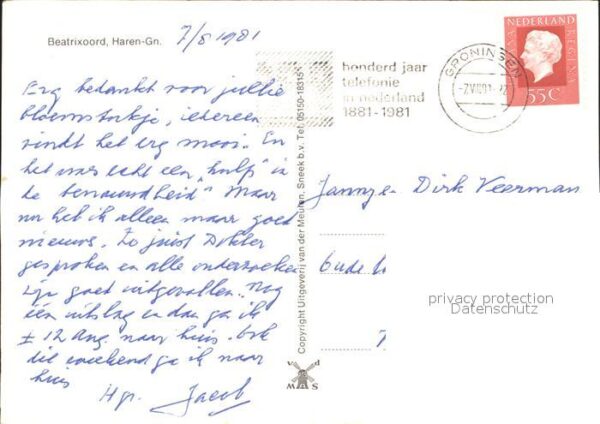 Beatrixoord, Haren-Gn.
7/8 1981
Erg bedankt voor jullie
bloemstukje, iedereen
vindt het erg mooi. En
het was echt een „hulp" in
de benauwdheid" Maar
nu heb ik alleen maar goed
nieuws. Zo juist Dokter
gesproken en alle onderzoeken
zijn goed uitgevallen. Nog
één uitslag en dan ga ik
± 12 Aug. naar huis. Ook
dit weekend ga ik naar
huis
Hgr. Jacob
Copyright Uitgeverij van der Meulen, Sneek b.v. Tel. 05150-18315*
v d
M S
honderd jaar
telefonie
in nederland
1881-1981
GRONINGEN
NEDERLAND
JULIANA REGINA
55c
Jannye - Dirk Veerman
Oude
7
privacy protection
Datenschutz